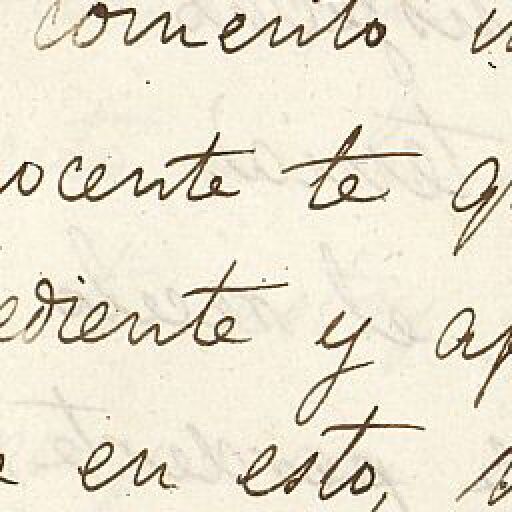 comento
ocente te
ediente y
en esto,